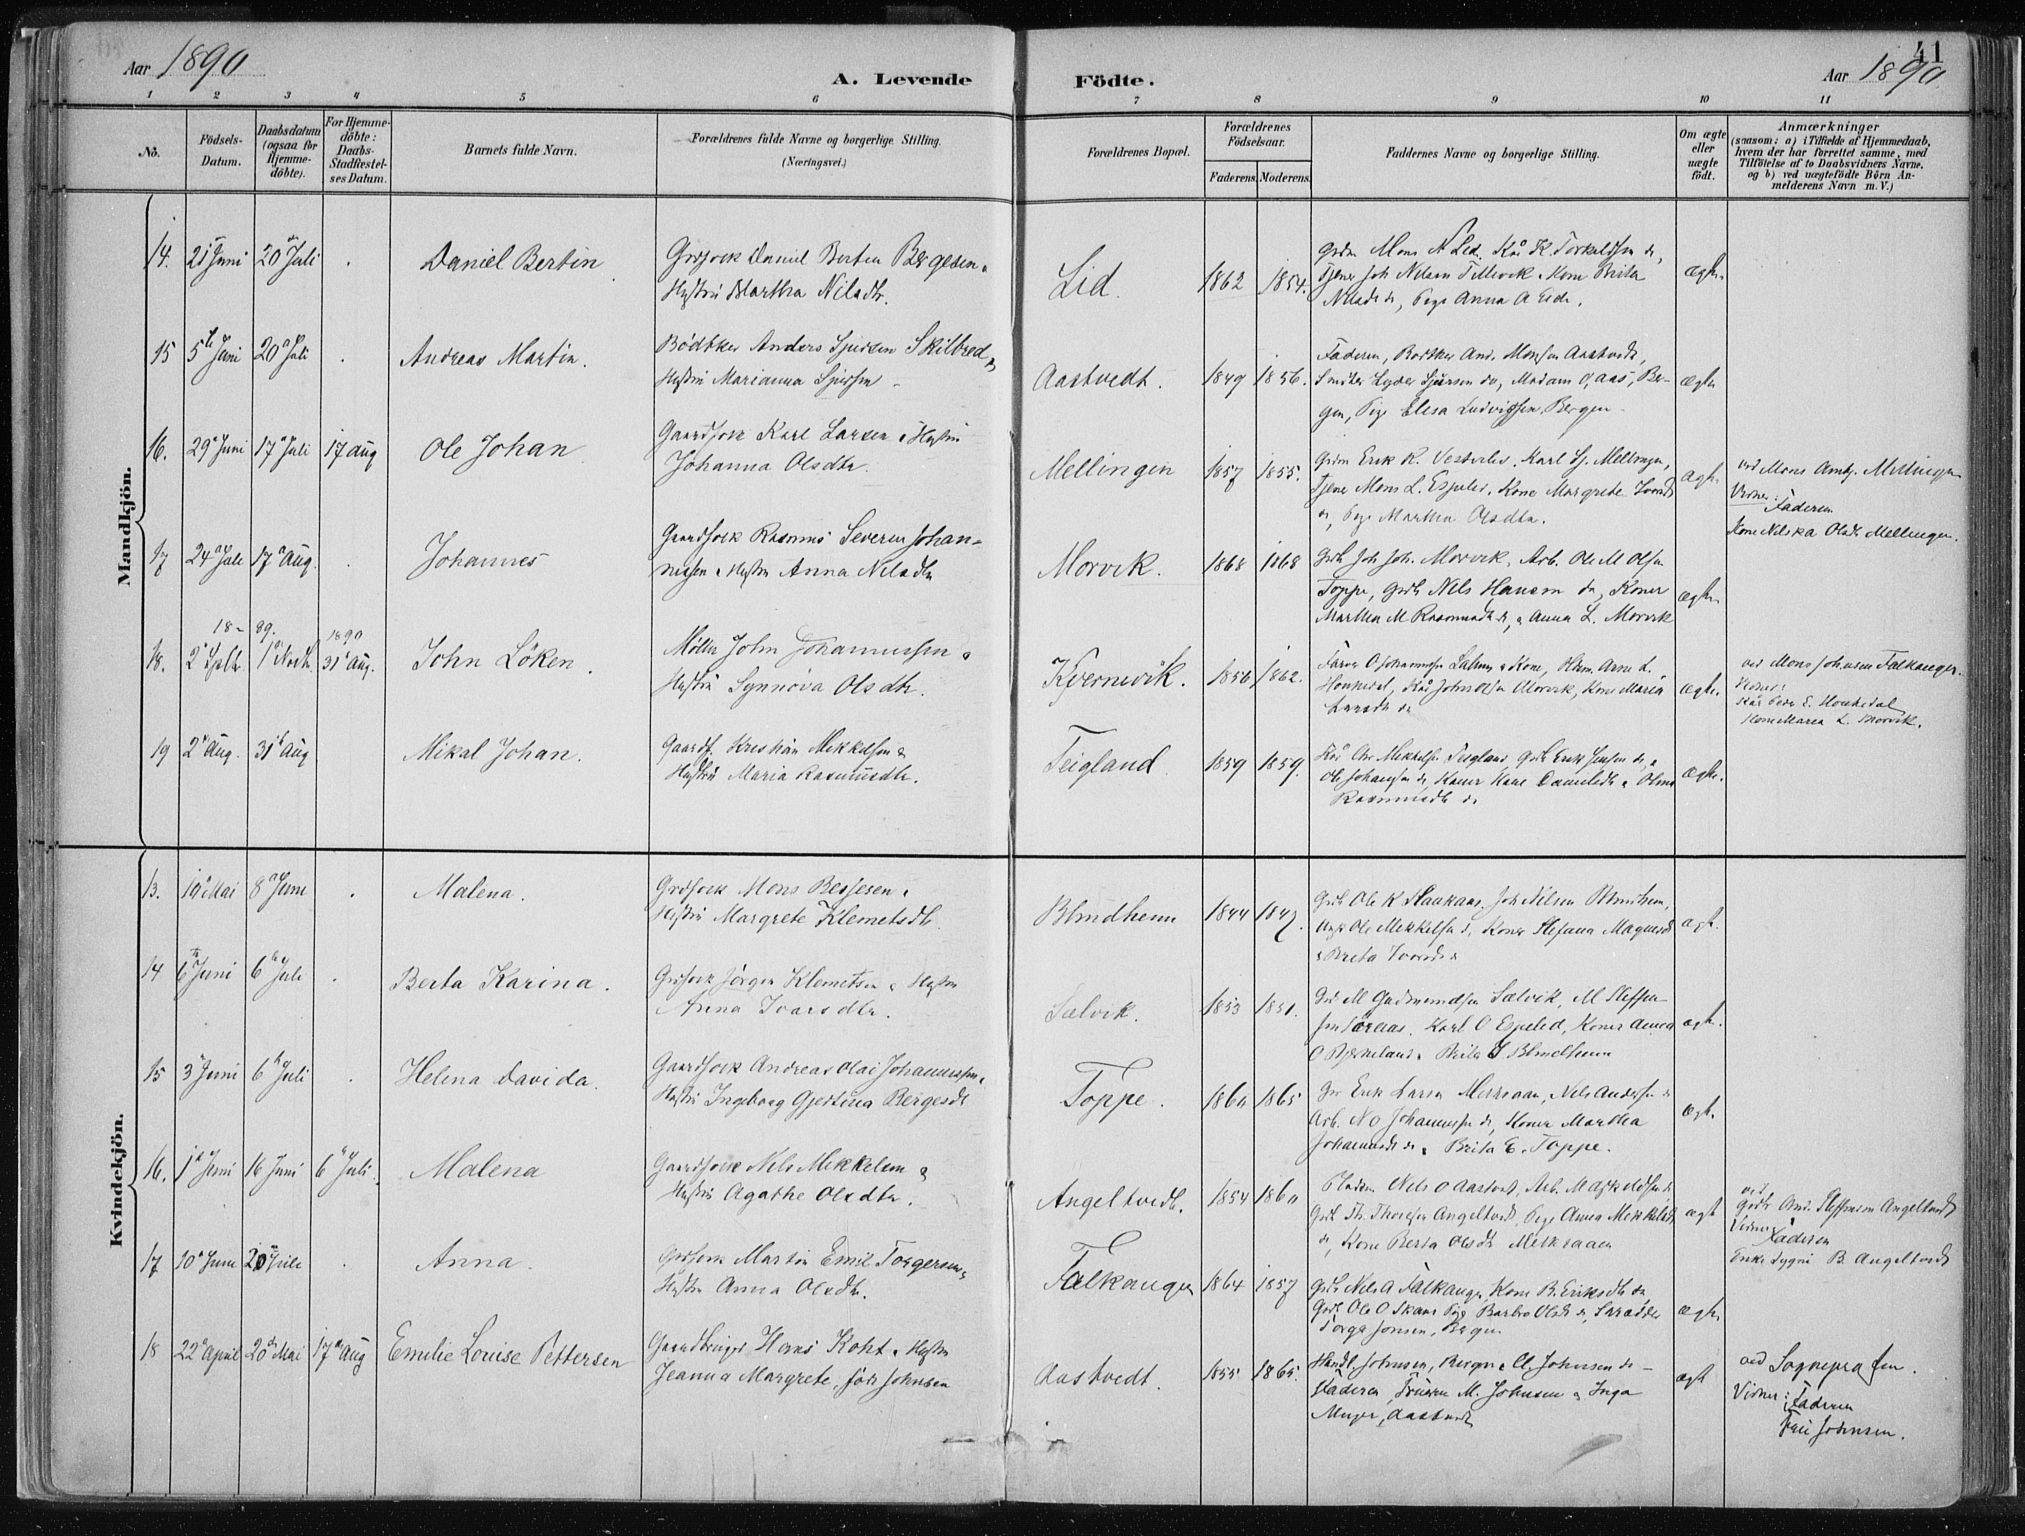 41
Aar 1890
A. Levende
Födte.
Aar 1890.
1 2 3 4 5 6 7 8 9 10 11
No.
Födsels-Datum.
Daabsdatum (ogsaa for Hjemme-döbte).
For Hjemme-döbte: Daabs-Stadfæstel-ses Datum.
Barnets fulde Navn.
Forældrenes fulde Navne og borgerlige Stilling. (Næringsvei.)
Forældrenes Bopæl.
Forældrenes Födselsaar.
Faderens. Moderens.
Faddernes Navne og borgerlige Stilling.
Om ægte eller uægte födt.
Anmærkninger
(saasom: a) i Tilfælde af Hjemmedaab, hvem der har forrettet samme, med Tilföielse af to Daabsvidners Navne, og b) ved uægtefödte Börn An-melderens Navn m. V.)
Mandkjön.
14. 21 Juni 20 Juli . Daniel Bertin
Grdfork Daniel Bertin Bergesen &
Hustru Martha Nilsdtr.
Lid. 1862 1854.
Mons N Lid, Kår K. Torkelsen do,
Tjener Joh Nilsen Tellevik, Kone Brita
Nilsdtr do, Pige Anna A Eide.
ægte
15 5 Juni 20 Juli . Andreas Martin.
Bødtker Anders Sjursen Skilbred &
Hustru Marianna Sjursen
Aastvedt. 1849 1856.
Faderen, Bødtker And. Monsen Aastvedt,
Smeker Lyder Sjursen do, Madam O, Aas, Ber-
gen, Pige Elisa Ludvigsen, Bergen
ægte
16. 29 Juni 17 Juli 17 Aug Ole Johan
Gaardfork Karl Larsen & Hustru
Johanna Olsdtr.
Mellingen 1857 1855.
Erik K. Vestrlid, Karl Sj. Mellingen,
Tjener Mons L. Espelid, Kone Margrete Ivarsdtr
do, Pige Martha Olsdtr.
ægte
ved Mons Mellingen
Vidner: Faderen
Kone Nilska Olsdtr Mellingen.
17 24 Juli 17 Aug. . Johannes
Gaardfork Rasmus Severin Johan-
nesen & Hustru Anna Nilsdtr
Morvik. 1868 1868
Joh Joh. Morvik, Arb. Ole M Olsen
Toppe, Grdbr Nels Hansen do, Koner
Martha M Rasmusdtr do, & Anna L. Morvik
ægte
18 - 89. 1890
18. 2 Septbr 1 Novbr 31 Aug. John Löken.
Møller John Johannessen &
Hustru Synnöva Olsdtr.
Kvernevik. 1856 1862.
Farver O Johannessen & Kone, Arne L.
Hordvik, Kår John Olsen Morvik, Kone Maria
Larsdtr do
ægte.
ved Mons Johnsen Falkanger.
Vidner:
Kår Peder E.
Kone Maria L. Morvik.
19 2 Aug. 31 Aug Mikal Johan.
Gaardf. Kristian Mikkelsen &
Hustru Maria Rasmusdtr.
Teigland 1859 1859.
Kår Chr Mikkelsen Teigland, Grdbr Erik Jensen do, &
Ole Johansen do, Koner Kari Danielsdtr & Olina
Rasmusdtr do
ægte.
Kvindekjön.
13. 19 Mai 8 Juni . Malena.
Grdfork Mons Bergesen &
Hustru Margrete Klemetsdtr.
Blindheim 1844 1847.
Ole K Haukaas, Joh Nilsen Blindheim,
Ole Mikkelsen do, Koner Stefana Magnesdtr
& Brita Ivarsdtr do
ægt.
14 6 Juni 6 Juli . Berta Karina.
Grdfork Jörgen Klemetsen & Hustru
Anna Ivarsdtr.
Sælvik. 1853 1851.
M Gudmundsen Sælvik, M Steffen-
sen Söreide, Karl O Espelid, Koner Anna
O Bjørkeland & Brita S Blindheim
ægt.
15 3 Juni 6 Juli . Helena Davida.
Gaardfork Andreas Olai Johannessen &
Hustru Ingeborg Gjertina Bergesdtr
Toppe. 1860 1865
Erik Larsen Merkaan, Nils Andersen do
Arb. N O Johannessen do, Koner Martha
Johannesdtr do & Brita E. Toppe.
ægt.
16. 1 Juni 16 Juni 6 Juli. Malena
Gaardfork Nils Mikkelsen &
Hustru Agathe Olsdtr.
Angeltvedt. 1854 1860
Nels O Aastvedt, Arb. M
Th. Thoresen Angeltvedt, Pige Anna Mikkelsdtr
do, Kone Berta Olsdtr Merkraaen
ægt
ved
Grdbr And. Steffensen Angeltvedt
Vidner: Faderen
Enke Sygni B. Angeltvedt
17 10 Juni 20 Juli . Anna.
Grdfork Martin Emil Torgersen &
Hustru Anna Olsdtr.
Falkanger 1864 1857
Grdbr Nils A Falkanger, Kone B. Eriksdtr do,
Grdbr Ole O Skaar, Pige Barbro Olsdtr do, Skrædder
Torge Jonsen, Bergen
ægte
18 22 April 20 Mai 17 Aug Emilie Louise Pettersen
Gaardbruger Hans Koht & Hustru
Jeanna Margrete, föd Johnsen
Aastvedt. 1855 1865.
Handl. Johnsen, Bergen & Cl. Johnsen do -
Faderen, Fruerne M. Johnsen & Inga
Meyer, Aastvedt
ægt
ved Sognepræsten.
Vidner: Faderen
Frue Johnsen.